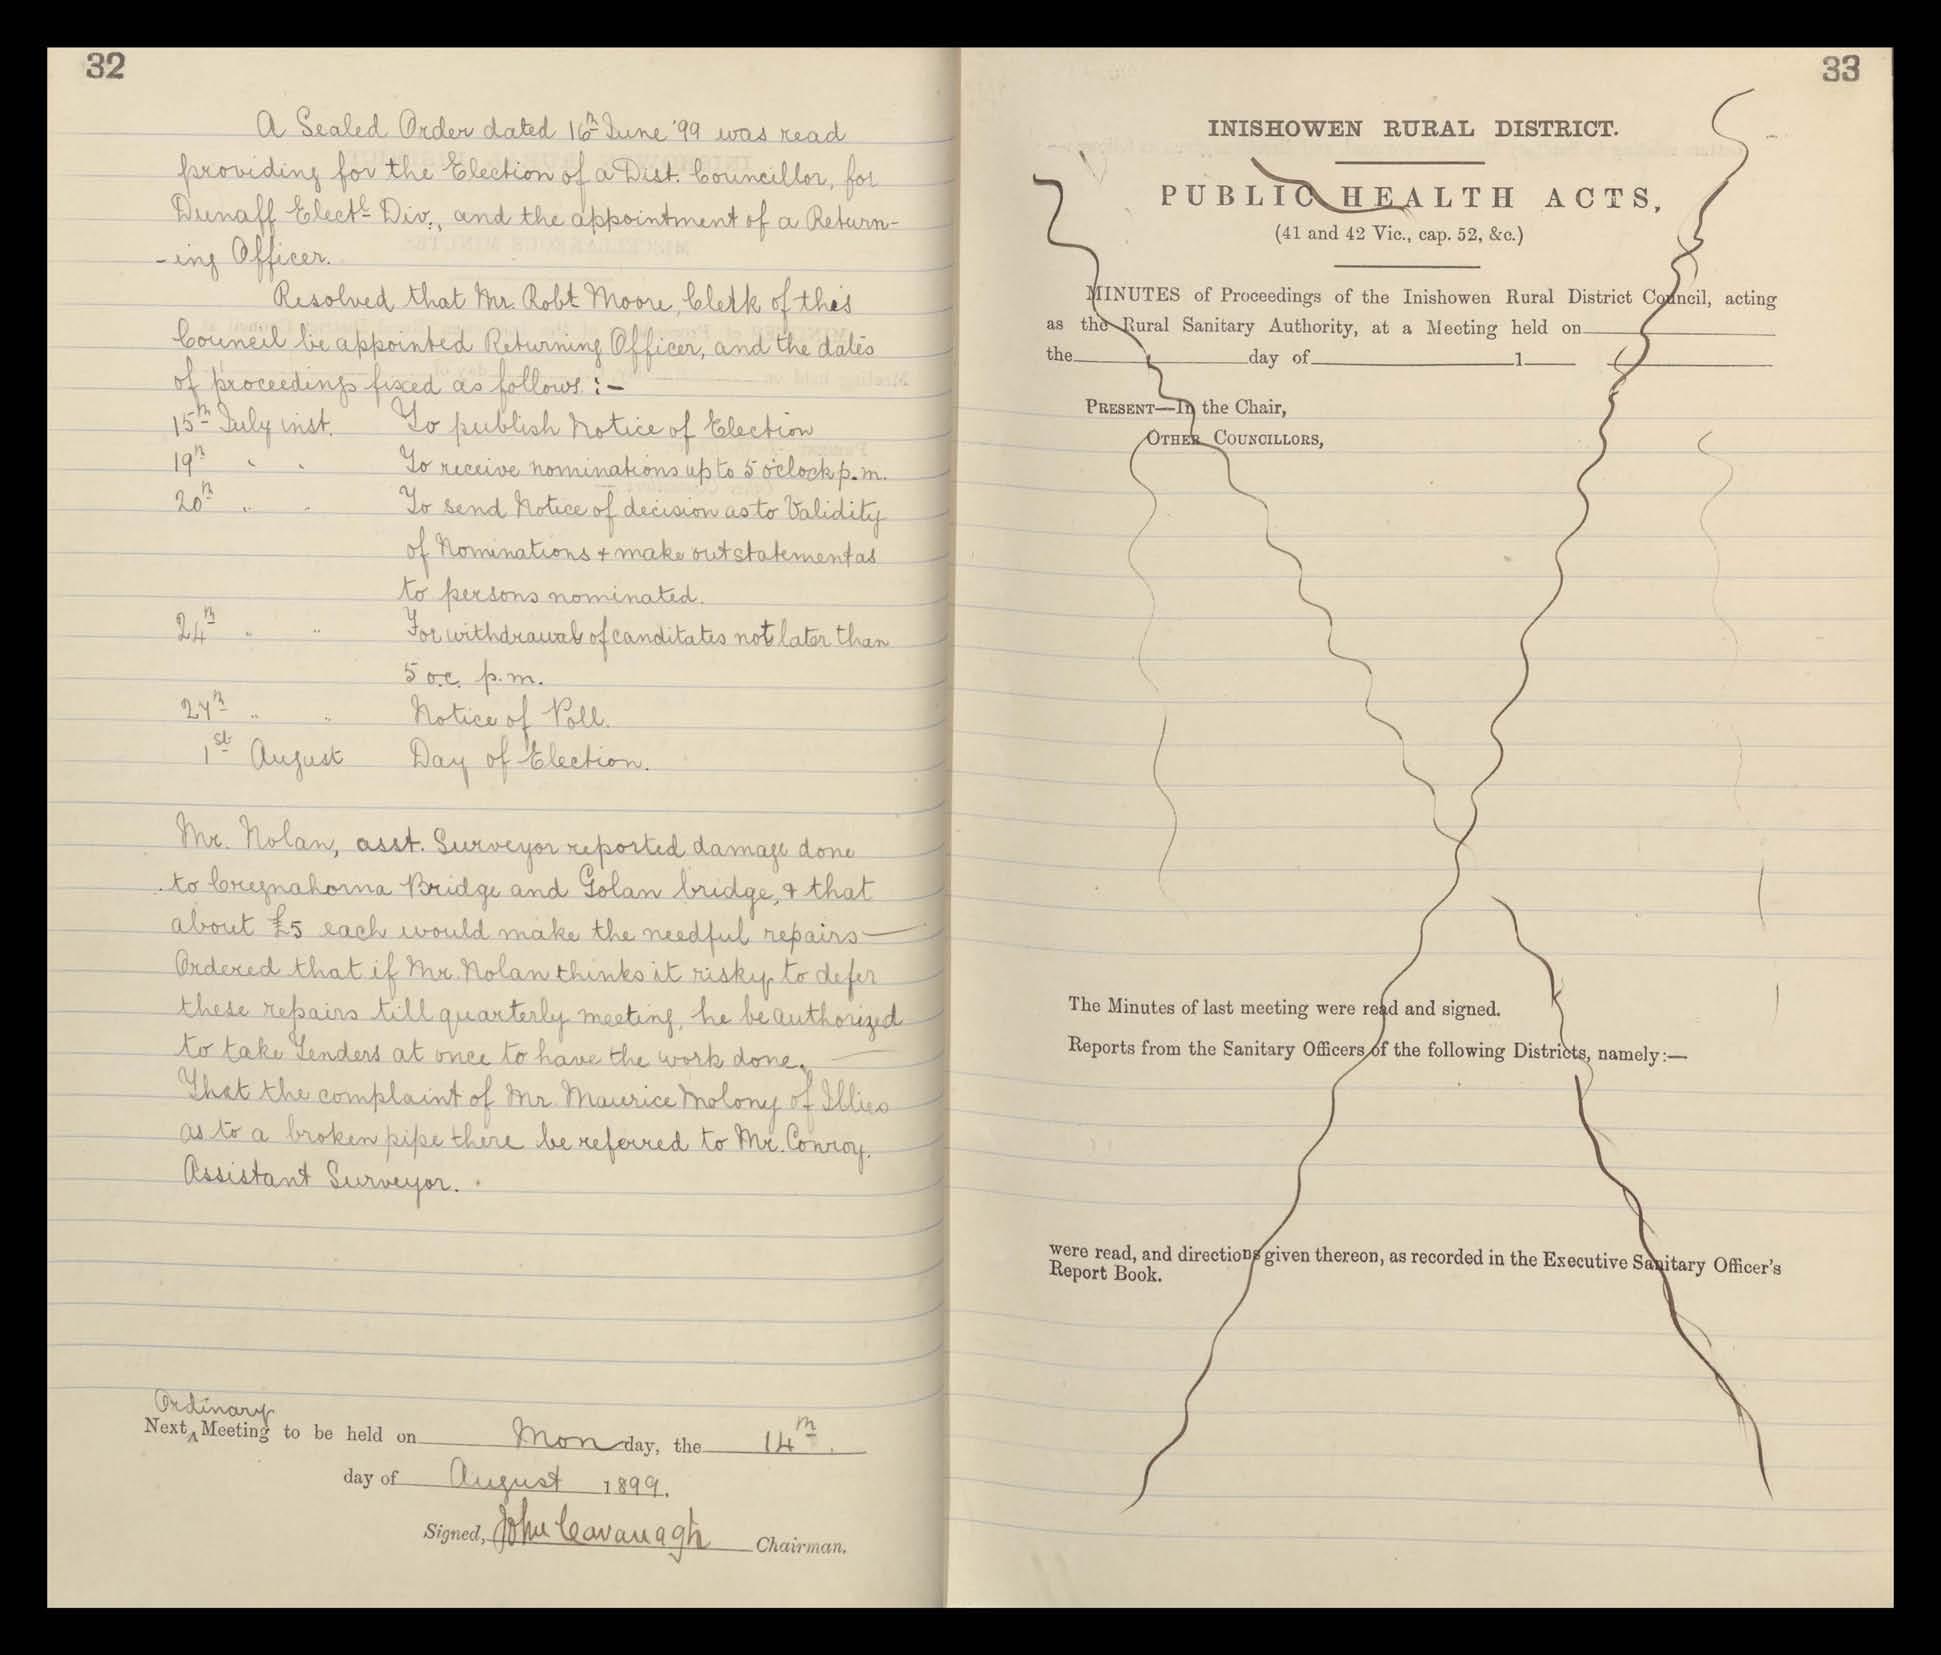 32
A Sealed Order dated 16th June '99 was read
providing for the Election of a Dist. Councillor, for
Dunaff Electl Div., and the appointment of a Return-
-ing Officer.
Resolved that Mr. Robt Moore, Clerk of this
Council be appointed Returning Officer, and the dates
of proceedings fixed as follows :-
15th July inst. To publish Notice of Election
19th " " To receive nominations up to 5 o'clock p.m.
20th " " To send Notice of decision as to Validity
of Nominations + make out statement as
to persons nominated.
24th " " For withdrawal of canditates not later than
5 o.c. p.m.
27th " " Notice of Poll.
1st August Day of Election.
Mr. Nolan, asst. Surveyor reported damage done
to Cregnahorna Bridge and Golan bridge, & that
about £5 each would make the needful repairs—
Ordered that if Mr. Nolan thinks it risky to defer
these repairs till quarterly meeting, he be authorized
to take Tenders at once to have the work done.—
That the complaint of Mr. Maurice Molony of Illies
as to a broken pipe there be referred to Mr. Conroy.
Assistant Surveyor.
Ordinary
Next ^ Meeting to be held on Monday, the 14th.
day of August 1899.
Signed, John Cavanagh Chairman.
33
INISHOWEN RURAL DISTRICT.
PUBLIC HEALTH ACTS,
(41 and 42 Vic., cap. 52, &c.)
MINUTES of Proceedings of the Inishowen Rural District Council, acting
as the Rural Sanitary Authority, at a Meeting held on
the day of 1
PRESENT—In the Chair,
OTHER COUNCILLORS,
The Minutes of last meeting were read and signed.
Reports from the Sanitary Officers of the following Districts, namely:—
were read, and directions given thereon, as recorded in the Executive Sanitary Officer's
Report Book.